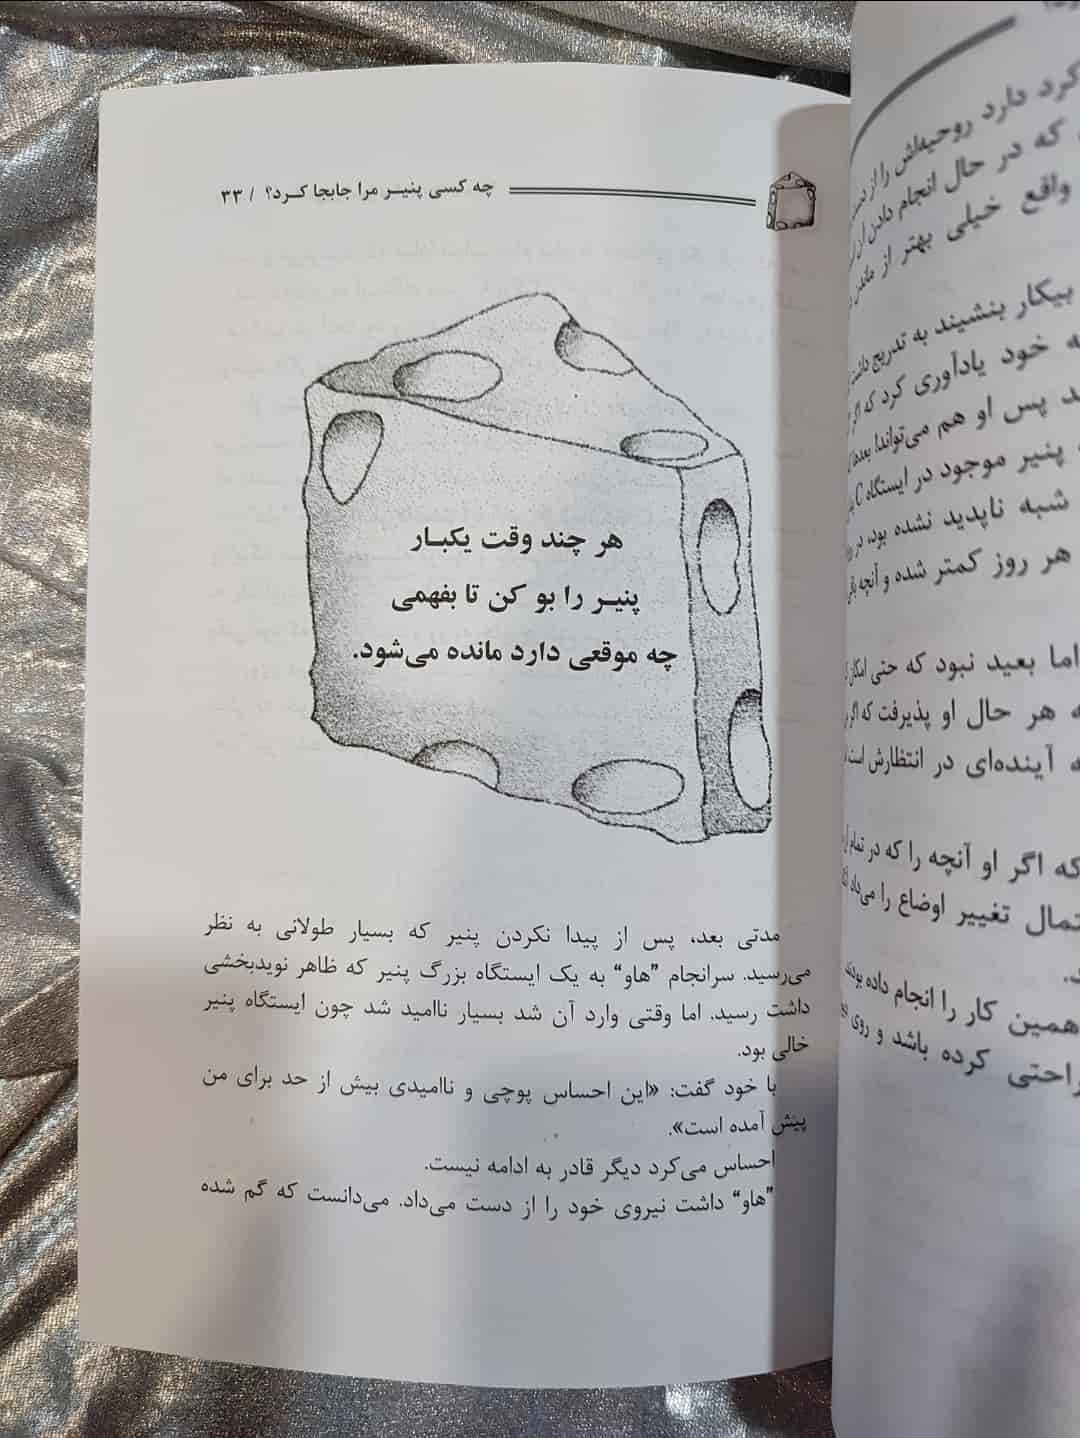 چه کسی پنیر مرا جابجا کرد؟ / ۳۳
هر چند وقت یکبار
پنیر را بو کن تا بفهمی
چه موقعی دارد مانده می‌شود.
مدتی بعد، پس از پیدا نکردن پنیر که بسیار طولانی به نظر
می‌رسید. سرانجام "هاو" به یک ایستگاه بزرگ پنیر که ظاهر نویدبخشی
داشت رسید. اما وقتی وارد آن شد بسیار ناامید شد چون ایستگاه پنیر
خالی بود.
با خود گفت: «این احساس پوچی و ناامیدی بیش از حد برای من
پیش آمده است».
احساس می‌کرد دیگر قادر به ادامه نیست.
"هاو" داشت نیروی خود را از دست می‌داد. می‌دانست که گم شده
کرد دارد روحیه‌اش را از دست
که در حال انجام دادن آن
واقع خیلی بهتر از ماندن
بیکار بنشیند به تدریج داشت
خود یادآوری کرد که اگر
پس او هم می‌تواند! بعدها
پنیر موجود در ایستگاه C
شبه ناپدید نشده بود، در
هر روز کمتر شده و آنچه
اما بعید نبود که حتی امکان
هر حال او پذیرفت که اگر
آینده‌ای در انتظارش است
که اگر او آنچه را که در تمام
تغییر اوضاع را می‌داد
همین کار را انجام داده بودند
کرده باشد و روی